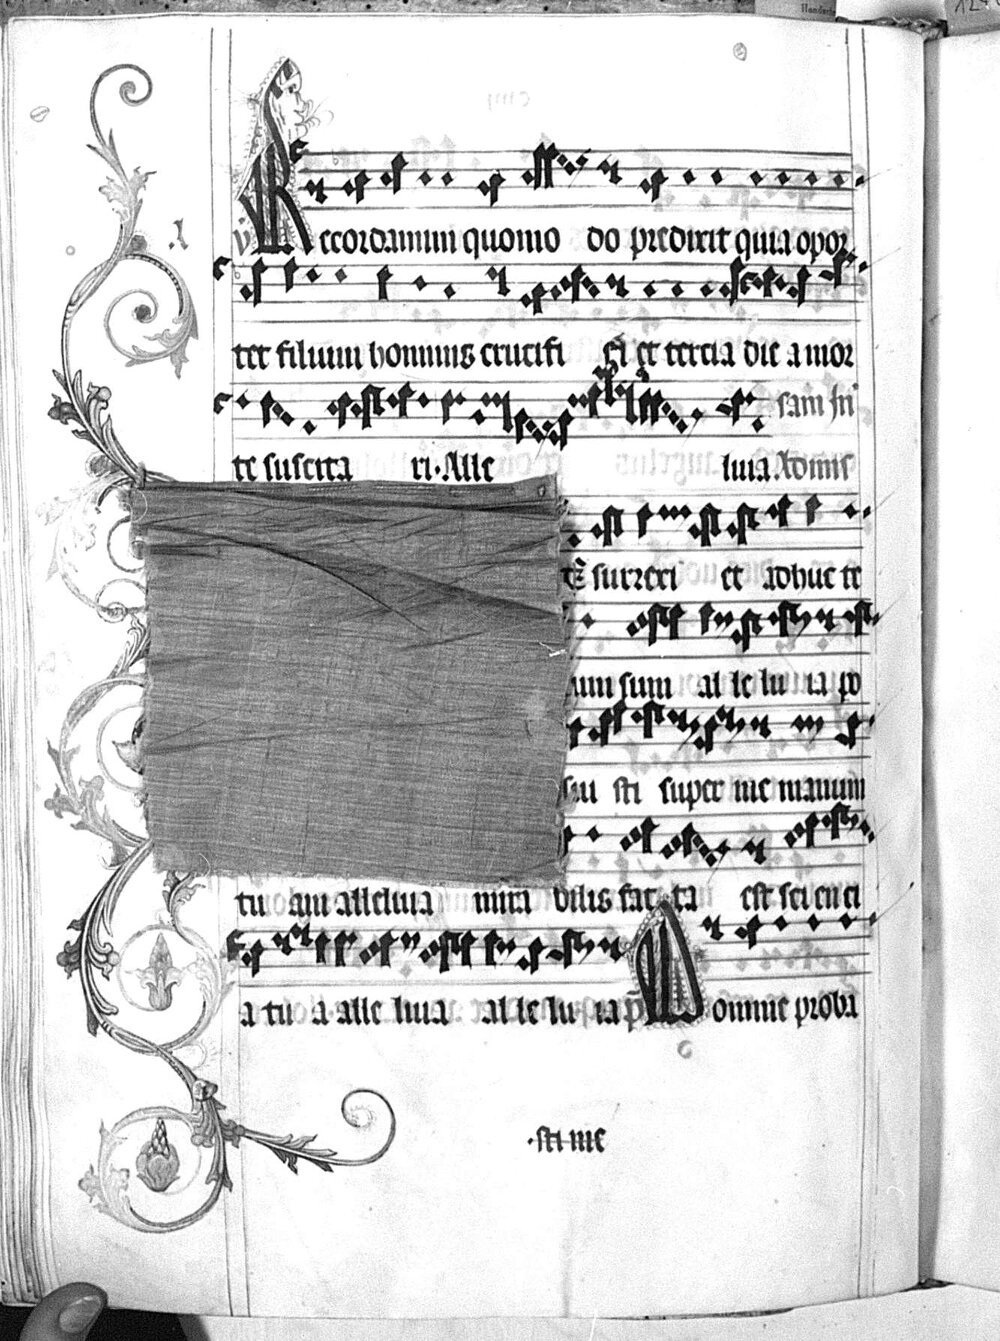 Recordamini quomo do predixit quia opor
tet filium hominis crucifi gi et tercia die a mor
sam In
te suscita ri. Alle luia
surrexi et adhuc te
cum sum al le lu ia po
sui sti super me manum
tu am alleluia mira bilis fac ta est sci en ci
a tu a alle luia al le lu ia Domine proba
.sti me